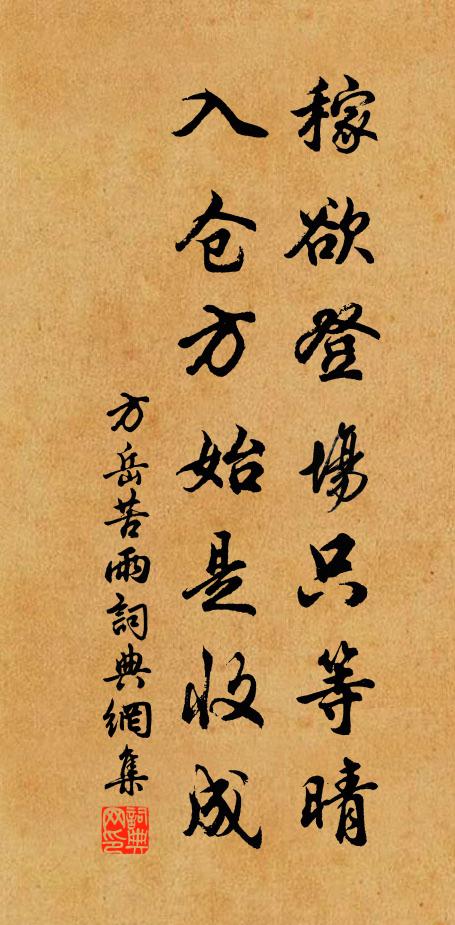 稼欲登場只等晴
入仓方始是收成
方岳苦雨詞典網集
詞典网印